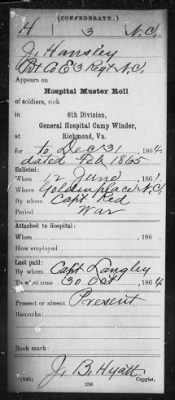 (CONFEDERATE.)
H 3 N.C.
J. Hansley
Pvt Co E 3 Regt N.C.
Appears on
Hospital Muster Roll
of soldiers, sick in
6th Division,
General Hospital Camp Winder,
at
Richmond, Va.
for to Dec 31, 1864.
dated Feb 1865
Enlisted:
When 12 June, 1861
Where Goldenplace N.C.
By whom Capt Red
Period War
Attached to Hospital:
When, 186
How employed
Last paid:
By whom Capt Langley
To what time 30 Oct, 1864
Present or absent Present
Remarks:
Book mark:
J. B. Hyatt
Copyist.